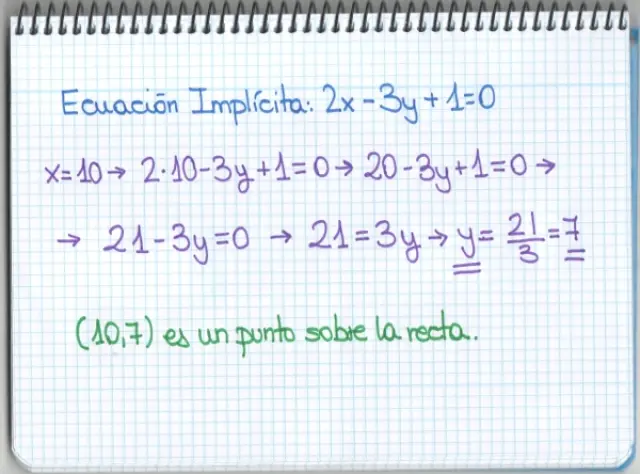 Ecuación Implícita: 2x - 3y + 1 = 0
x = 10 → 2·10 - 3y + 1 = 0 → 20 - 3y + 1 = 0 →
→ 21 - 3y = 0 → 21 = 3y → y = 21/3 = 7
(10,7) es un punto sobre la recta.